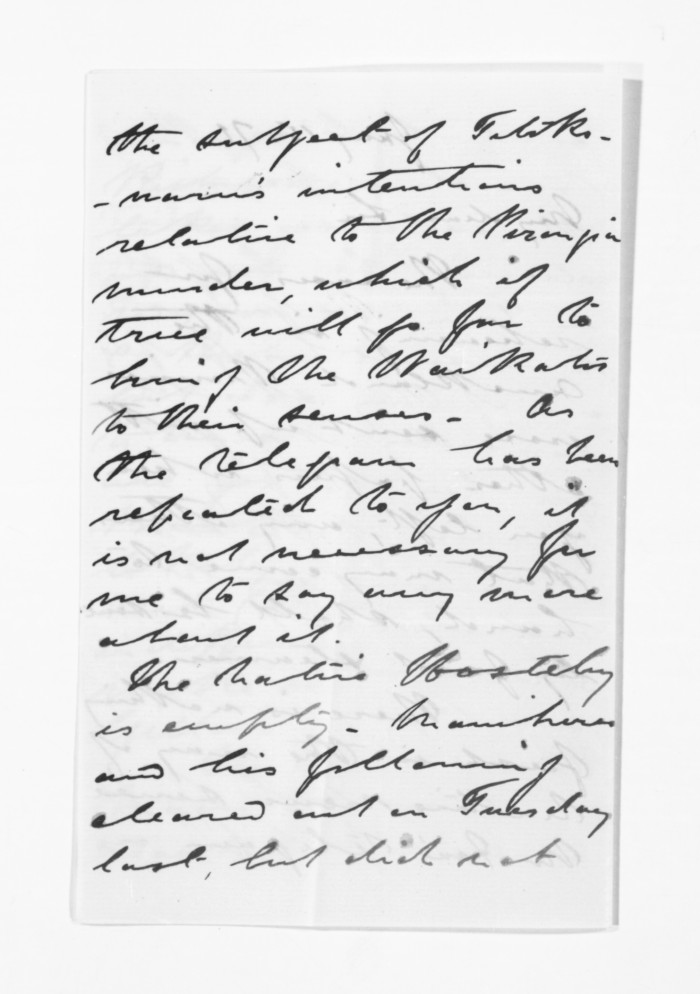 the subject of Titoko-
-waru's intentions
relative to the Pirongia
murder, which if
true will go far to
bring the Waikatos
to their senses - As
the telegram has been
repeated to you, it
is not necessary for
me to say any more
about it.
The Native Hostelry
is empty -
and his following
cleared out on Tuesday
last, but did not